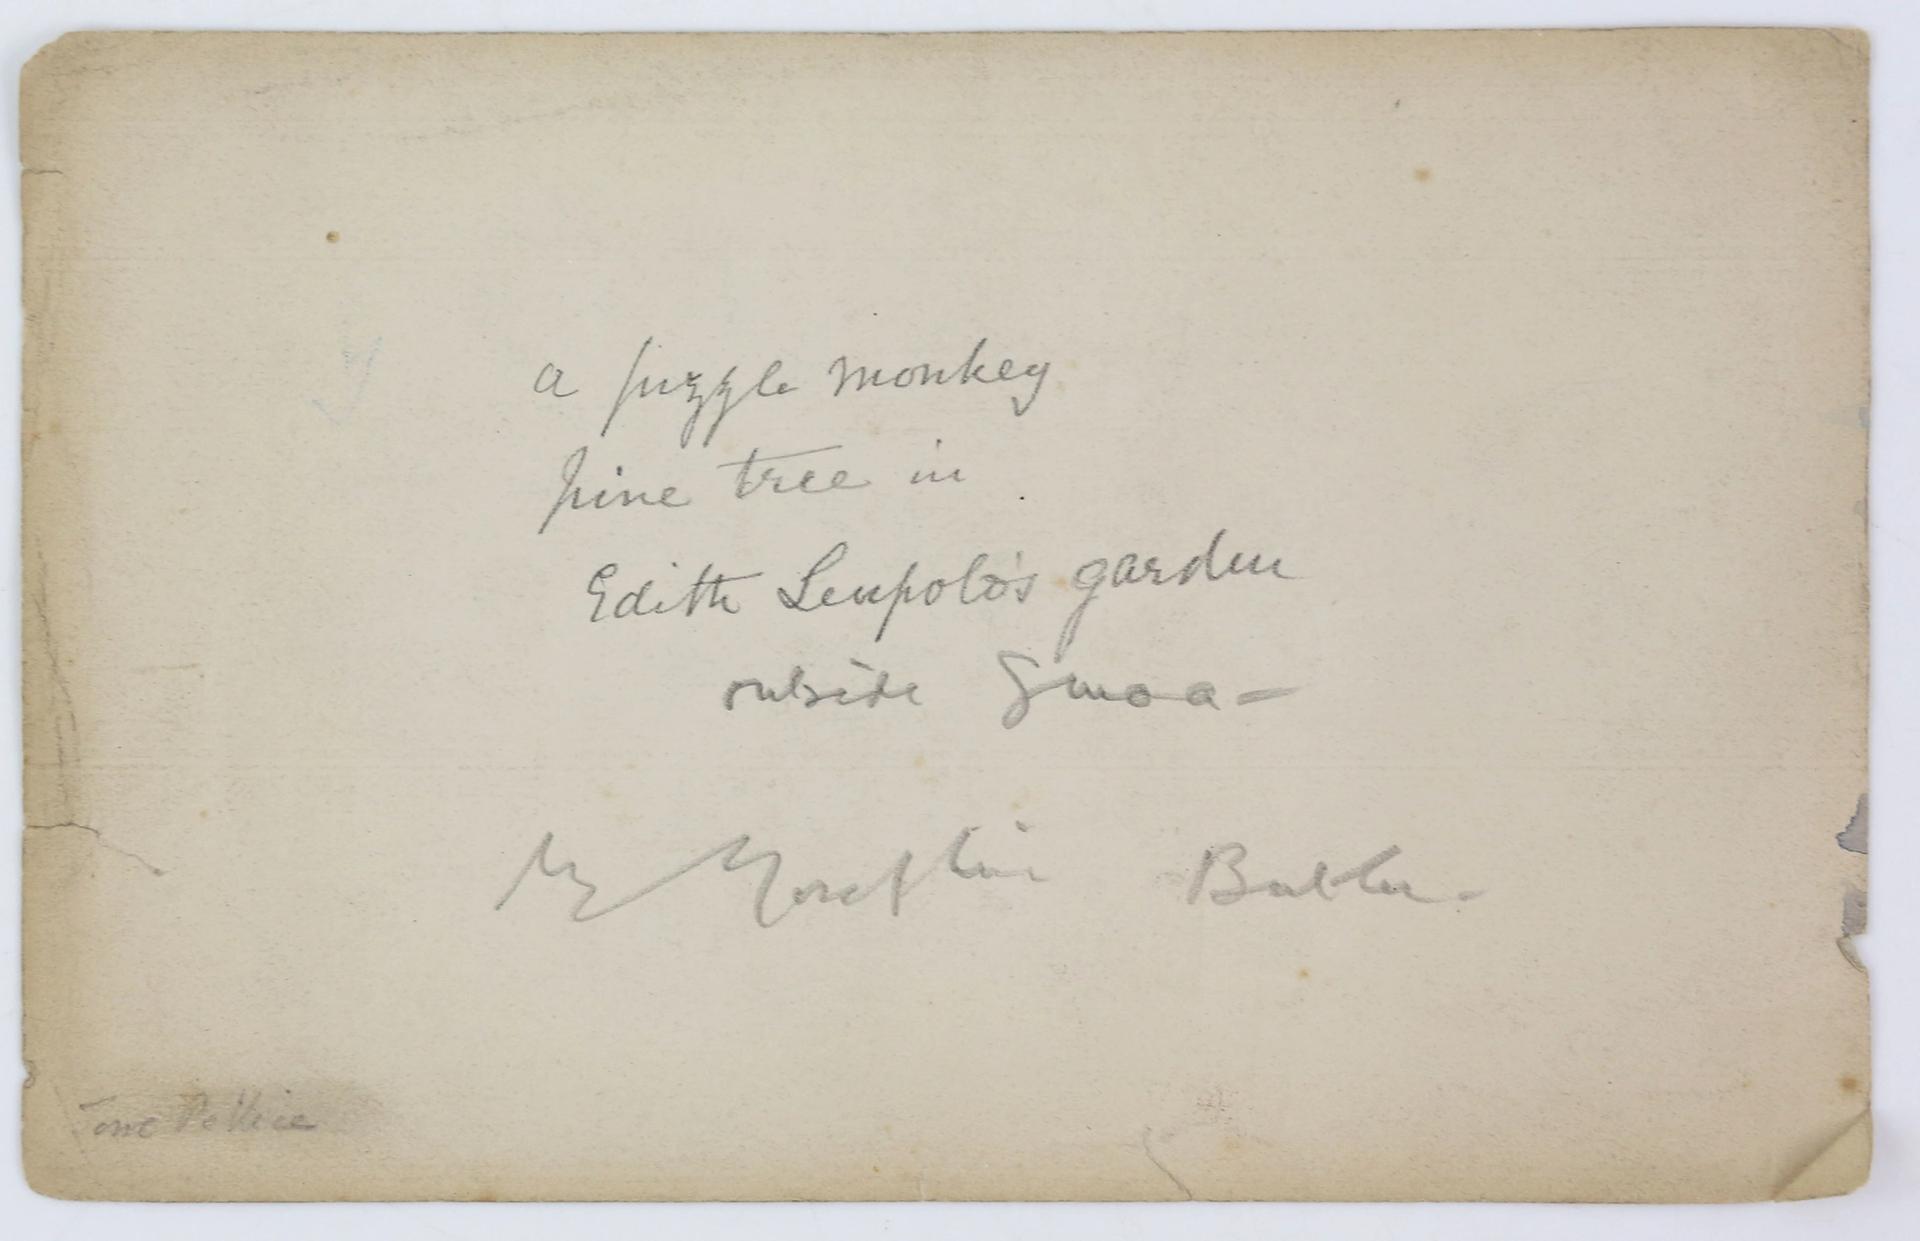 a puzzle monkey
pine tree in
Edith Leupold's garden
outside Genoa –
By Josephine Butler.
Torre Pellice